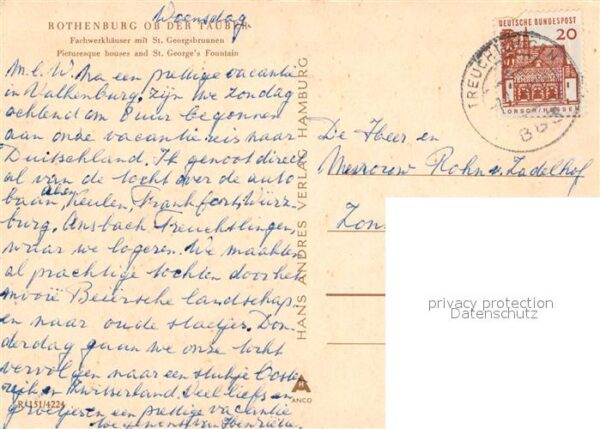 Woensdag
ROTHENBURG OB DER TAUBER
Fachwerkhäuser mit St. Georgsbrunnen
Picturesque houses and St. George's Fountain
M.l.W. Na een prettige vacantie
in Valkenburg, zijn we zondag
ochtend om 8 uur begonnen
aan onze vacantiereis naar
Duitschland. Ik genoot direct
al van de tocht over de auto
baan, Aken, Keulen, Frankfort, Würz
burg. Ansbach Treuchtlingen,
waar we logeren. We maakten
al prachtige tochten door het
mooie Beiersche landschap
en naar oude stadjes. Don
derdag gaan we onze tocht
vervolgen naar een stukje Oosten
rijk en Zwitserland. Veel liefs en
groetjes en een prettige vacantie
Henriette
RU 151/4224
HANS ANDRES VERLAG HAMBURG
ANCO
DEUTSCHE BUNDESPOST
20
LORSCH/HESSEN
TREUCHTLINGEN
De Heer en
Mevrouw Rohn v. Zadelhof
Zon
privacy protection
Datenschutz